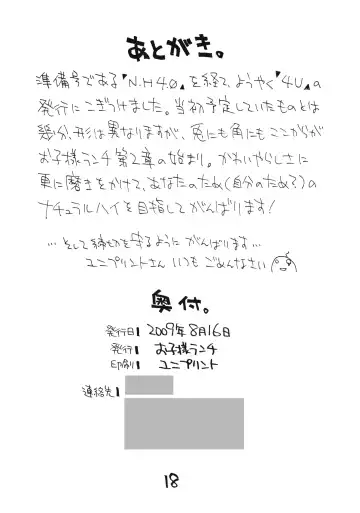 あとがき。
準備号である『N.H4.0』を経て、ようやく『4U』の
発行にこぎつけました。当初予定していたものとは
幾分、形は異なりますが、兎にも角にもここからが
お子様ランチ第2章の始まり。かわいやらしさに
更に磨きをかけて、あなたのため(自分のため?)の
ナチュラルハイを目指してがんばります!
…そして締切を守るようにがんばります…
ユニプリントさんいつもごめんなさい
奥付。
発行日 2009年8月16日
発行 お子様ランチ
印刷 ユニプリント
連絡先
18